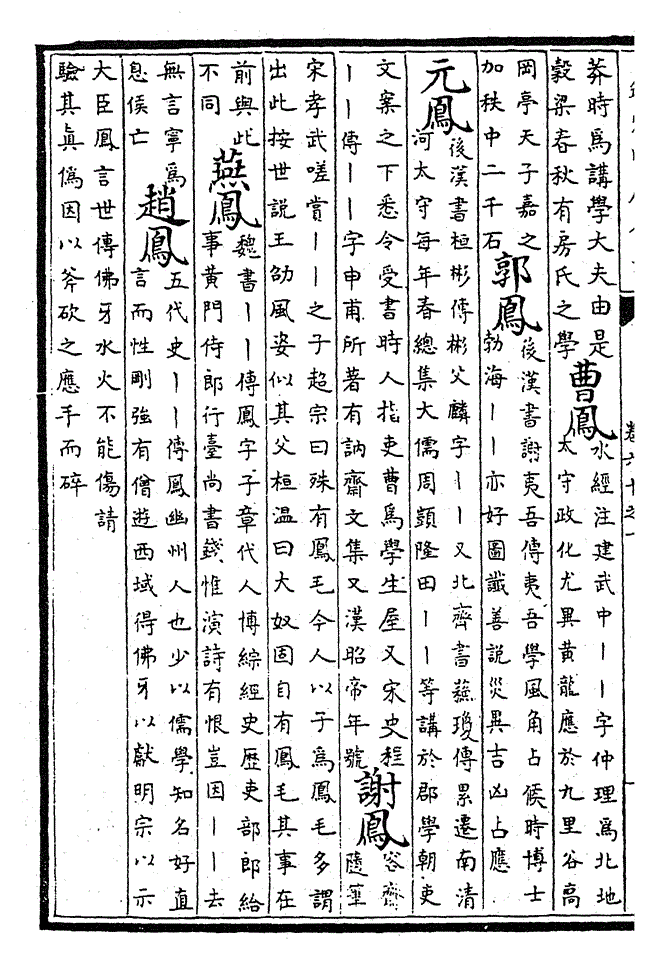 卷六十之一
莽時爲講學大夫由是
穀梁春秋有房氏之學
曹鳳
水經注建武中丨丨字仲理爲北地
太守政化尤異黃龍應於九里谷高
岡亭天子嘉之
加秩中二千石
郭鳳
後漢書謝夷吾傳夷吾學風角占候時博士
勃海丨丨亦好圖讖善說災異吉凶占應
元鳳
後漢書桓彬傳彬父麟字丨丨又北齊書蘇瓊傳累遷南清
河太守每年春總集大儒周顗隆田丨丨等講於郡學朝吏
文案之下悉令受書時人指吏曹爲學生屋又宋史程
丨丨傳丨丨字申甫所著有訥齋文集又漢昭帝年號
謝鳳
容齋
隨筆
宋孝武嗟賞丨丨之子超宗曰殊有鳳毛今人以子爲鳳毛多謂
出此按世說王劭風姿似其父桓溫曰大奴固自有鳳毛其事在
前與此
不同
燕鳳
魏書丨丨傳鳳字子章代人博綜經史歷吏部郎給
事黃門侍郎行臺尚書錢惟演詩有恨豈因丨丨去
無言寧爲
息侯亡
趙鳳
五代史丨丨傳鳳幽州人也少以儒學知名好直
言而性剛強有僧遊西域得佛牙以獻明宗以示
大臣鳳言世傳佛牙水火不能傷請
驗其眞僞因以斧砍之應手而碎